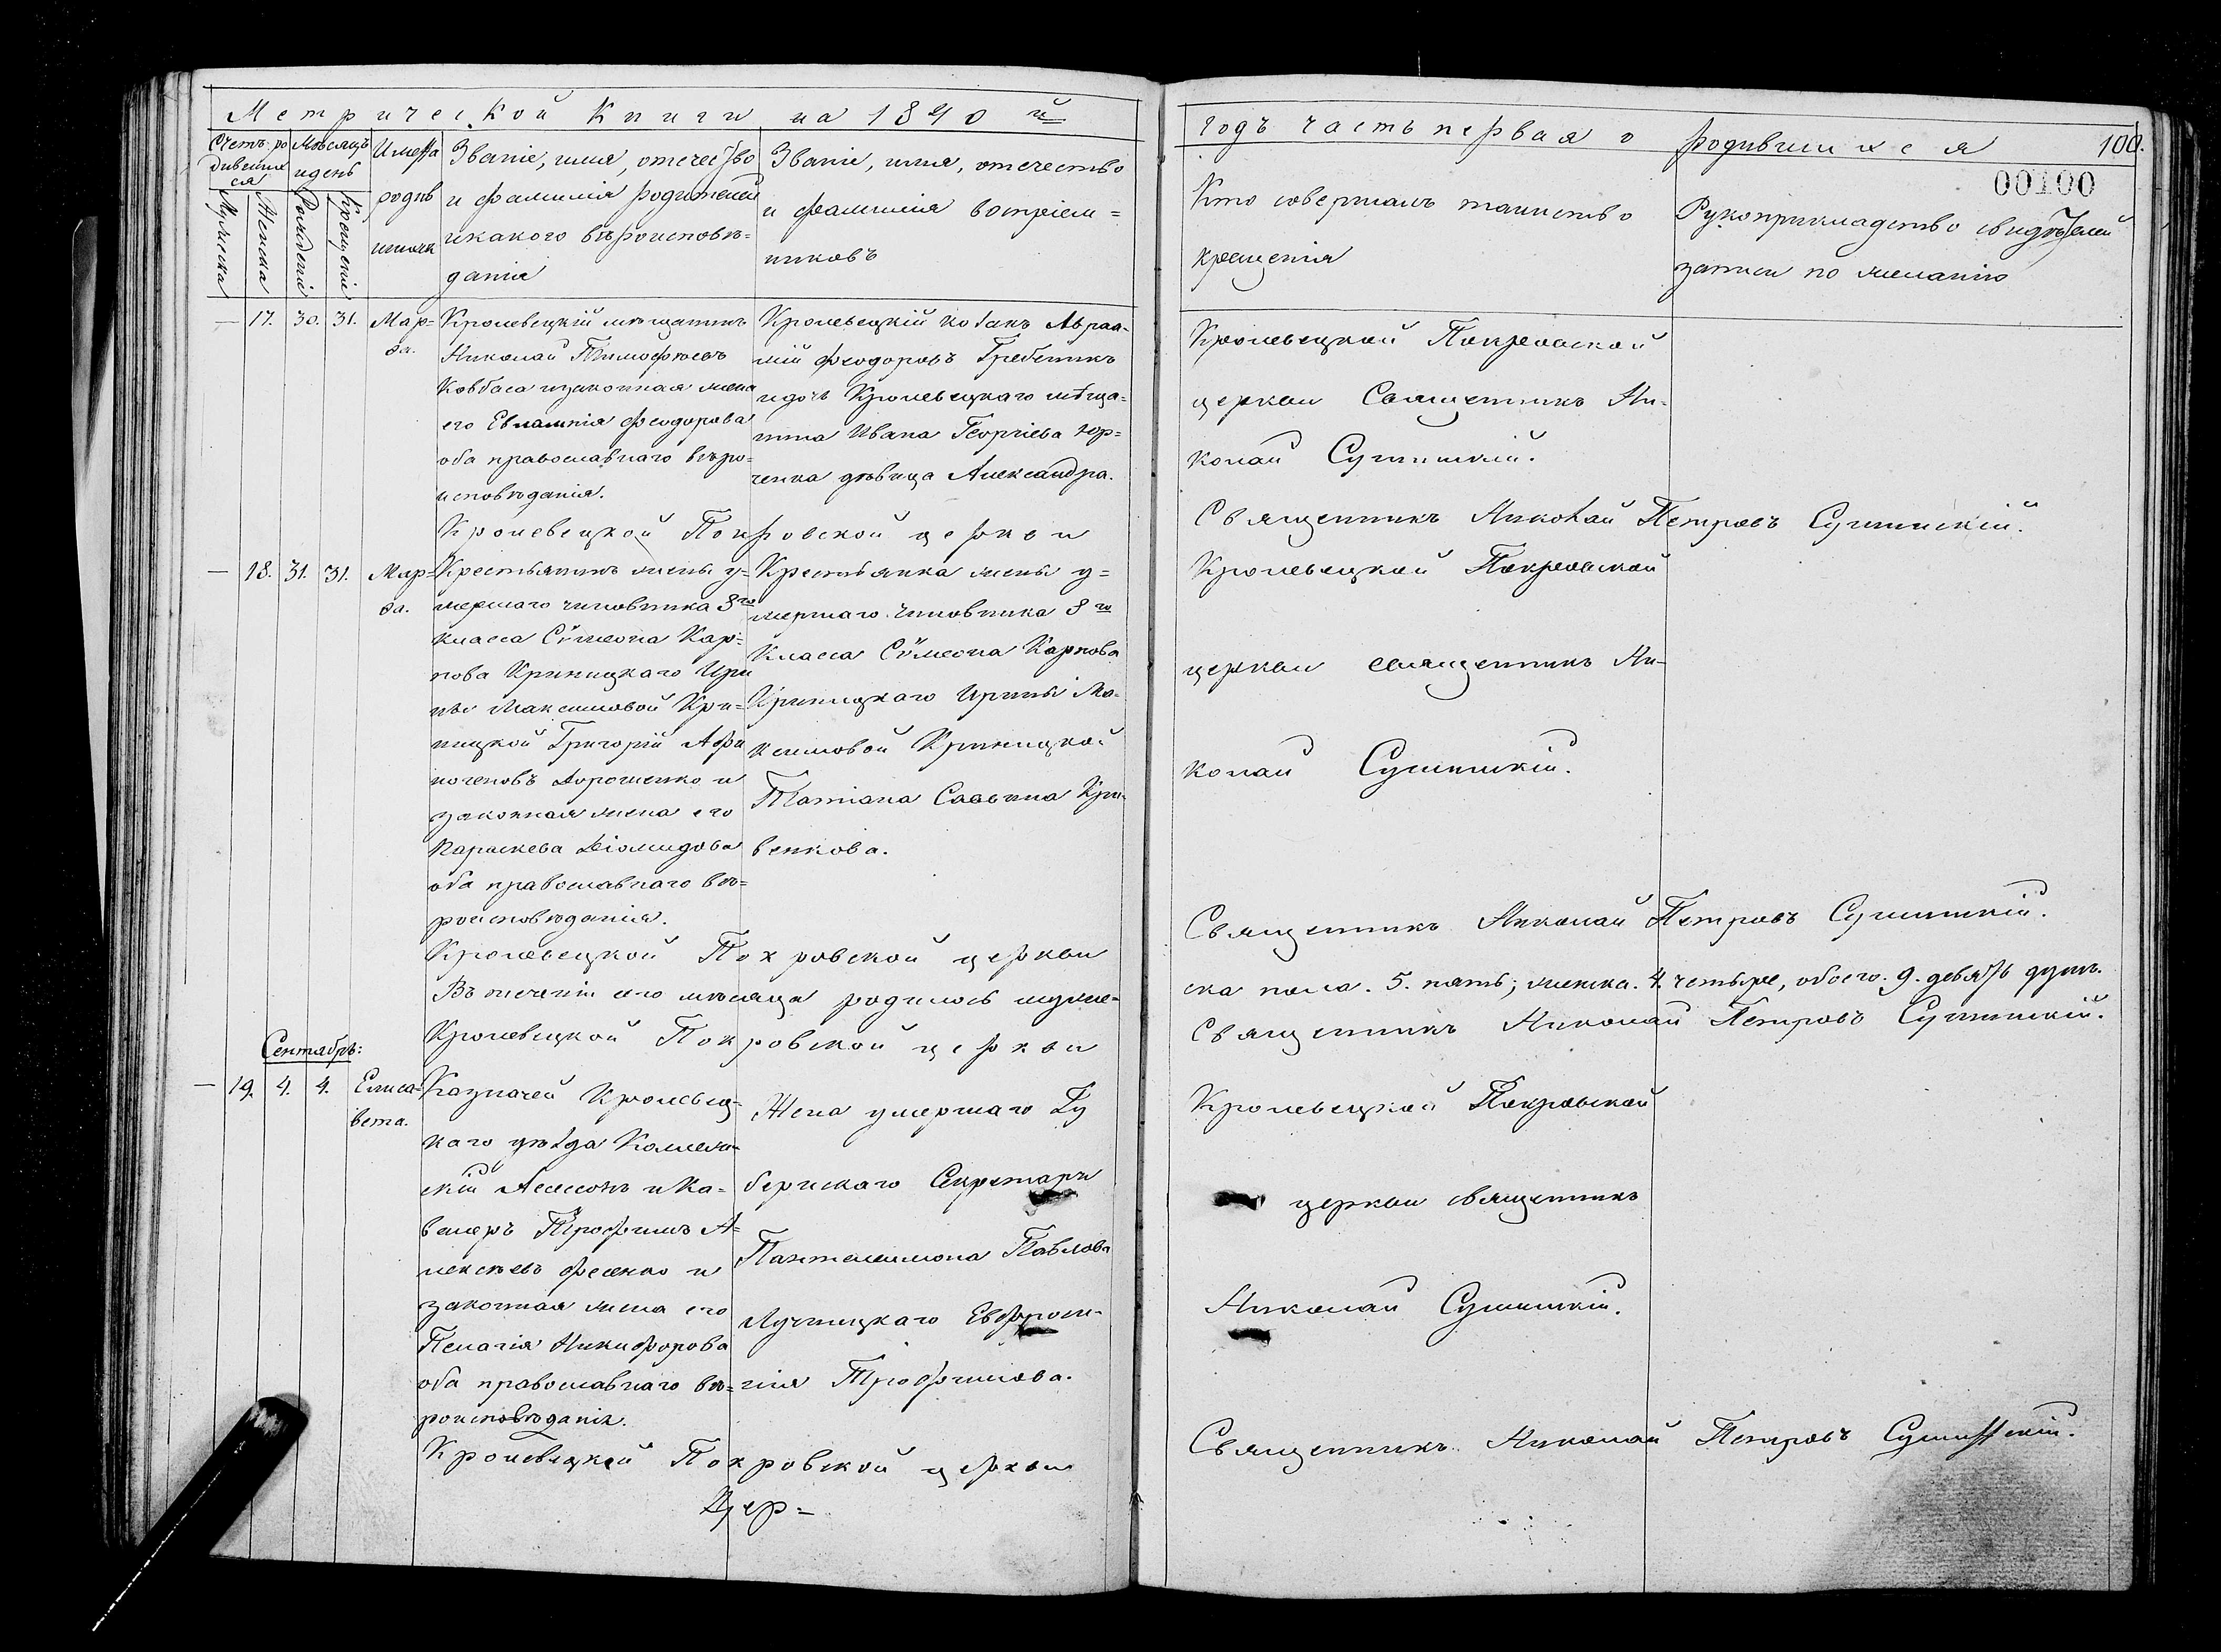 Метрической Книги на 1840 й
годъ часть первая о родившихся
100.
00100
Счетъ ро
дивших
ся
Мѣсяцъ
и день
Имена
родив
шихся
Званіе, имя, отечество
и фамилія родителей
и какого вѣроисповѣ=
данія
Званіе, имя, отечество
и фамилія воспріем=
никовъ
Мужеска
Женска
Рожденія
Крещенія
Кто совершалъ таинство
крещенія
Рукоприкладство свидѣтелей
записи по желанію
— 17. 30. 31. Мар=
ѳа.
Кролевецкій мѣщанинъ
Николай Тимофѣевъ
Ковбаса и законная жена
его Евлампія Феодорова
оба православнаго вѣро=
исповѣданія.
Кролевецкій козакъ Авраа=
мій Феодоровъ Гребеникъ
и дочь Кролевецкаго мѣща=
нина Ивана Георгіева Юр=
ченка дѣвица Александра.
Кролевецкой Покровской
церкви Священникъ Ни=
колай Сушинскій.
Кролевецкой Покровской церкви
Священникъ Николай Петровъ Сушинскій.
— 18. 31. 31. Мар=
ѳа.
Крестьянинъ жены у=
мершаго чиновника 8го
класса Сѵмеона Кар=
пова Криницкаго Ири
ны Максимовой Кри=
ницкой Григорій
Дорошенко и
законная жена его
Параскева Діомидова
оба православнаго вѣ=
роисповѣданія.
Крестьянка жены у=
мершаго чиновника 8го
класса Сѵмеона Карпова
Криницкаго Ирины Ма=
ксимовой Криницкой
Татіана Саввина Кри=
венкова.
Кролевецкой Покровской
церкви священникъ Ни=
колай Сушинскій.
Кролевецкой Покровской церкви
Священникъ Николай Петровъ Сушинскій.
Въ теченіи сего мѣсяца родилось муже=
ска пола. 5. пять; женска. 4. четыре, обоего. 9. девять душъ.
Кролевецкой Покровской церкви
Священникъ Николай Петровъ Сушинскій.
Сентябрь:
— 19. 4. 4. Елиса=
вета.
Казначей Кролевец=
каго уѣзда Коллеж=
скій Асессоръ и Ка=
валеръ Трофимъ А=
лексѣевъ Фесенко и
законная жена его
Пелагія Никифорова
оба православнаго вѣ=
роисповѣданія.
Жена умершаго Гу
бернскаго Секретаря
Пантелеимона Павлова
Лучницкаго Евфроси=
нія Трофимова.
Кролевецкой Покровской
церкви священникъ
Николай Сушинскій.
Кролевецкой Покровской церкви
Священникъ Николай Петровъ Сушинскій.
Цер=